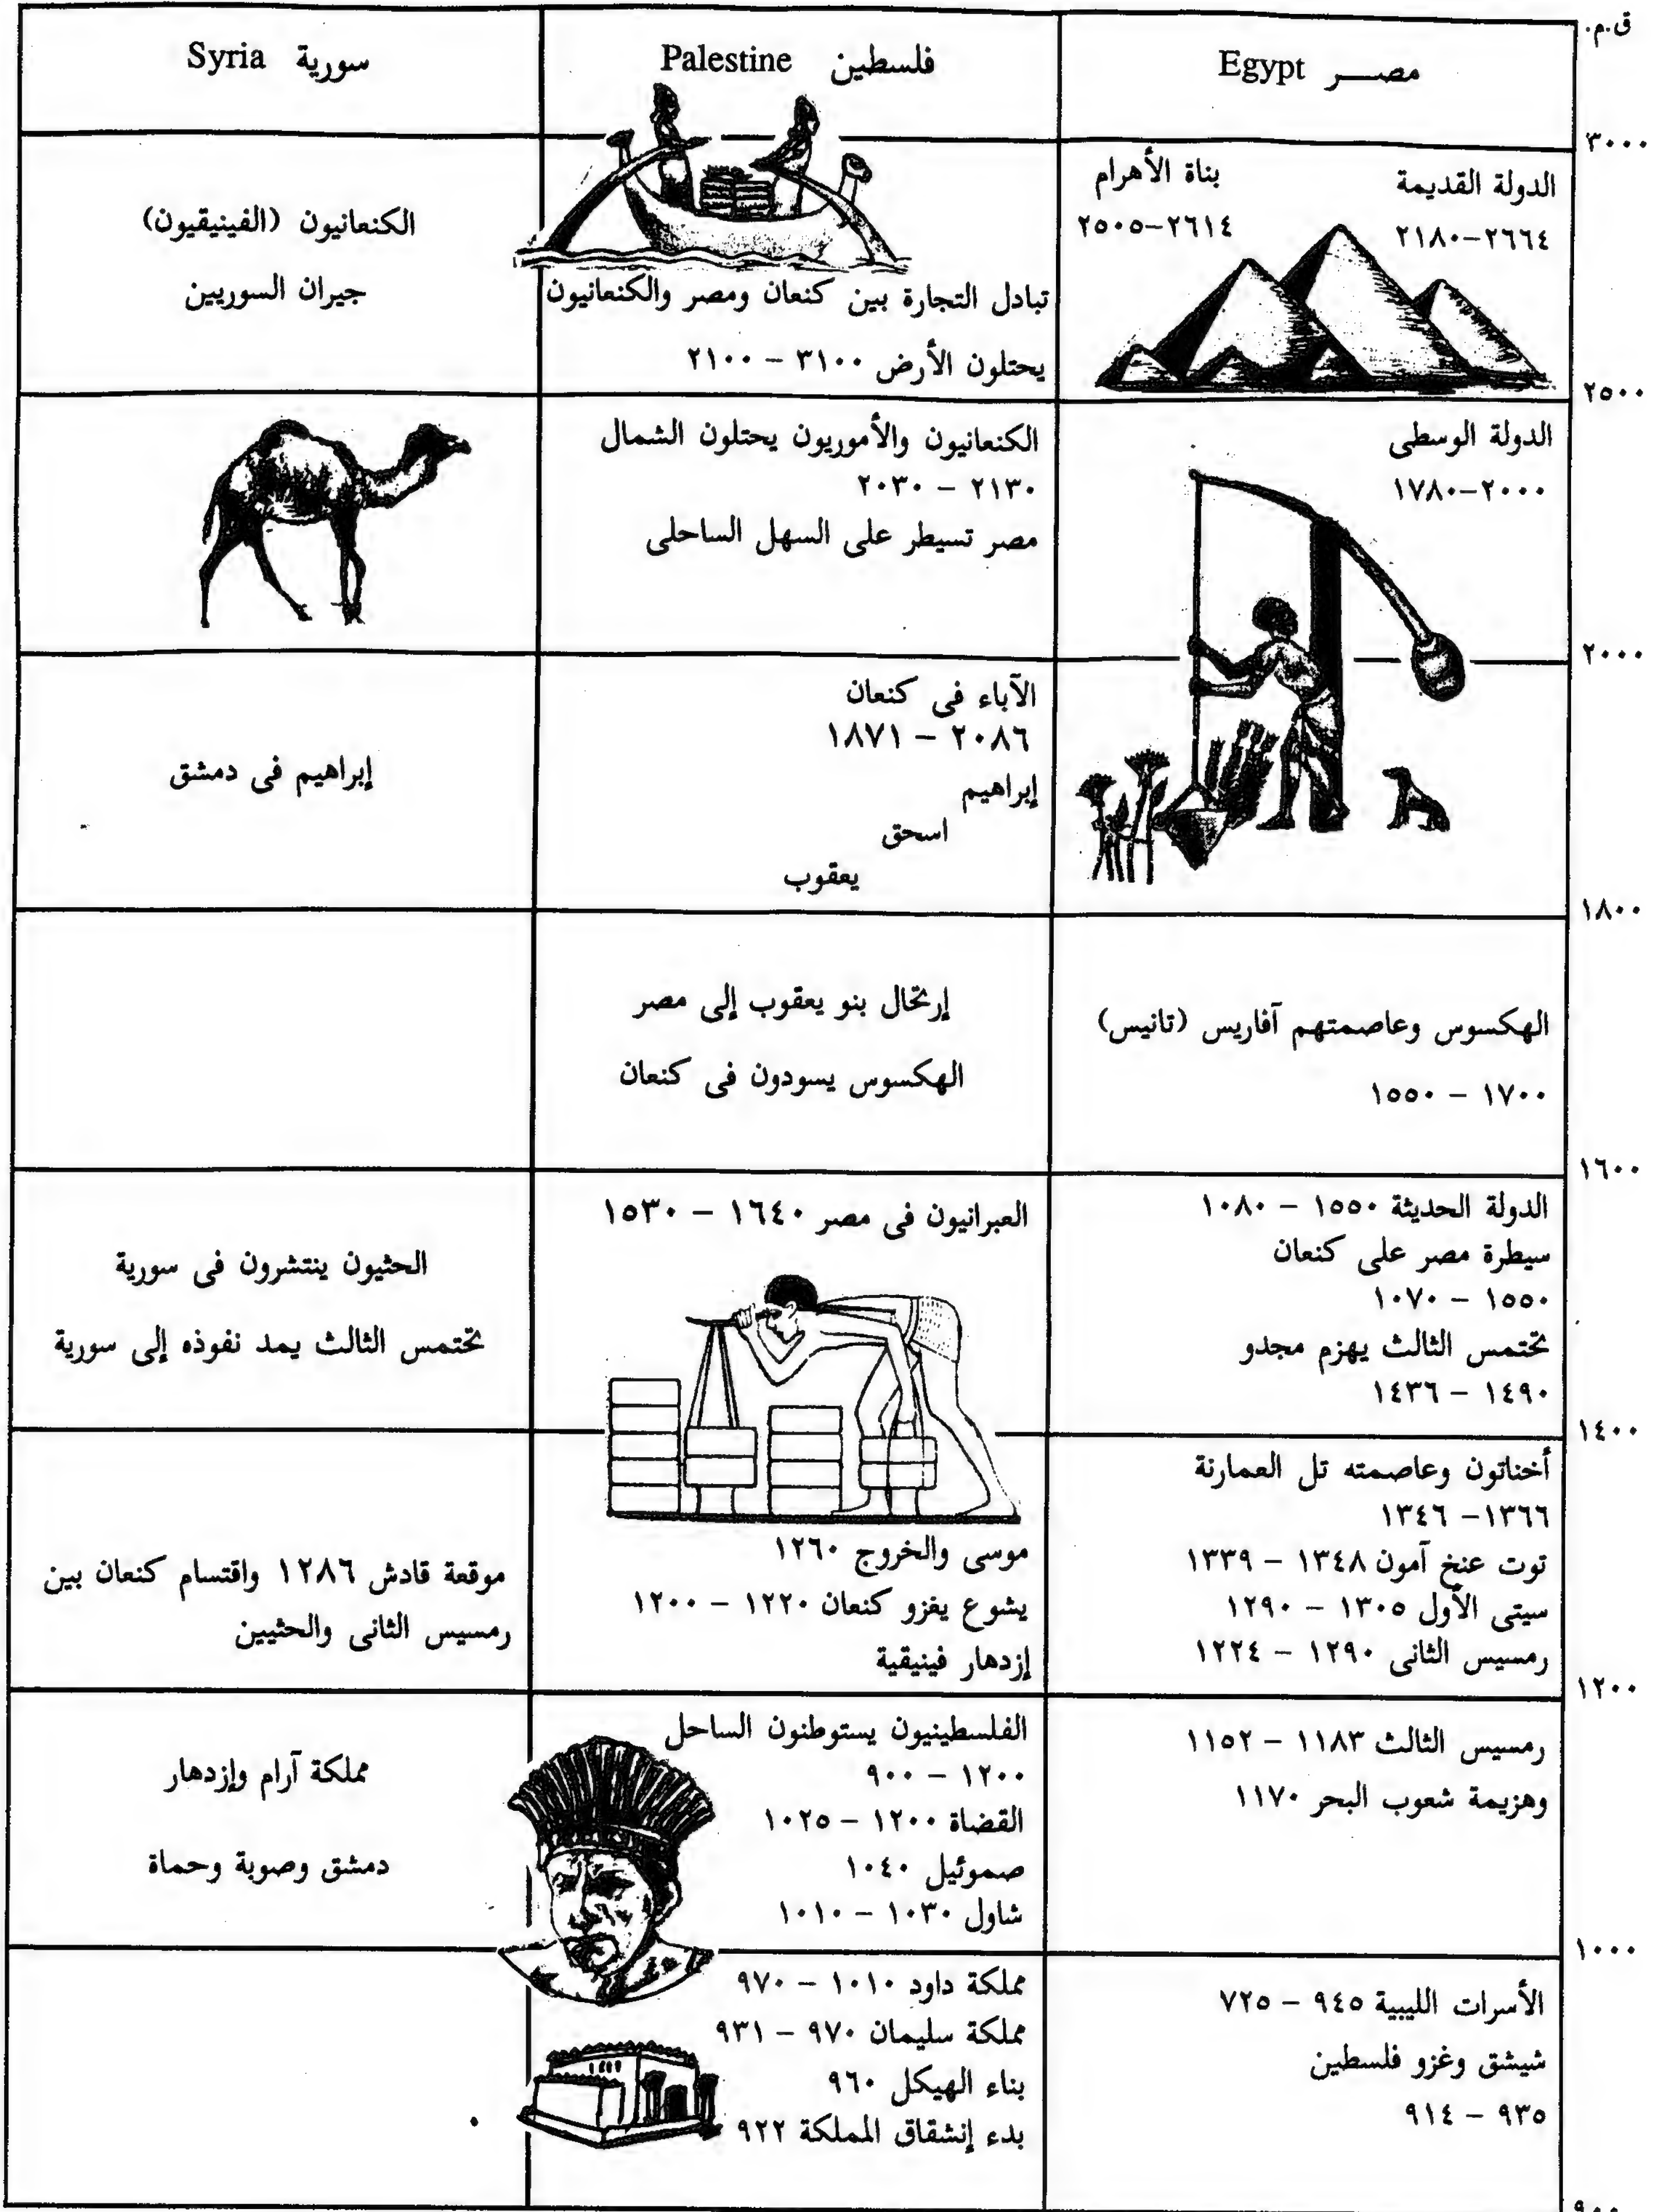 ق.م.
مصر Egypt
فلسطين Palestine
سورية Syria
٣٠٠٠
الدولة القديمة
٢٦٦٤-٢١٨٠
بناة الأهرام
٢٦١٤-٢٥٠٥
تبادل التجارة بين كنعان ومصر والكنعانيون
يحتلون الأرض ٣١٠٠ - ٢١٠٠
الكنعانيون (الفينيقيون)
جيران السوريين
٢٥٠٠
الدولة الوسطى
٢٠٠٠-١٧٨٠
الكنعانيون والأموريون يحتلون الشمال
٢١٣٠ - ٢٠٣٠
مصر تسيطر على السهل الساحلى
٢٠٠٠
الآباء فى كنعان
٢٠٨٦ - ١٨٧١
إبراهيم
اسحق
يعقوب
إبراهيم فى دمشق
١٨٠٠
الهكسوس وعاصمتهم آفاريس (تانيس)
١٧٠٠ - ١٥٥٠
إرتحال بنو يعقوب إلى مصر
الهكسوس يسودون فى كنعان
١٦٠٠
الدولة الحديثة ١٥٥٠ - ١٠٨٠
سيطرة مصر على كنعان
١٥٥٠ - ١٠٧٠
تحتمس الثالث يهزم مجدو
١٤٩٠ - ١٤٣٦
العبرانيون فى مصر ١٦٤٠ - ١٥٣٠
الحثيون ينتشرون فى سورية
تحتمس الثالث يمد نفوذه إلى سورية
١٤٠٠
أخناتون وعاصمته تل العمارنة
١٣٦٦- ١٣٤٦
توت عنخ آمون ١٣٤٨ - ١٣٣٩
سيتى الأول ١٣٠٥ - ١٢٩٠
رمسيس الثانى ١٢٩٠ - ١٢٢٤
موسى والخروج ١٢٦٠
يشوع يغزو كنعان ١٢٢٠ - ١٢٠٠
إزدهار فينيقية
موقعة قادش ١٢٨٦ واقتسام كنعان بين
رمسيس الثانى والحثيين
١٢٠٠
رمسيس الثالث ١١٨٣ - ١١٥٢
وهزيمة شعوب البحر ١١٧٠
الفلسطينيون يستوطنون الساحل
١٢٠٠ - ٩٠٠
القضاة ١٢٠٠ - ١٠٢٥
صموئيل ١٠٤٠
شاول ١٠٣٠ - ١٠١٠
مملكة آرام وإزدهار
دمشق وصوبة وحماة
١٠٠٠
الأسرات الليبية ٩٤٥ - ٧٢٥
شيشق وغزو فلسطين
٩٣٥ - ٩١٤
مملكة داود ١٠١٠ - ٩٧٠
مملكة سليمان ٩٧٠ - ٩٣١
بناء الهيكل ٩٦٠
بدء إنشقاق المملكة ٩٢٢
٩٠٠